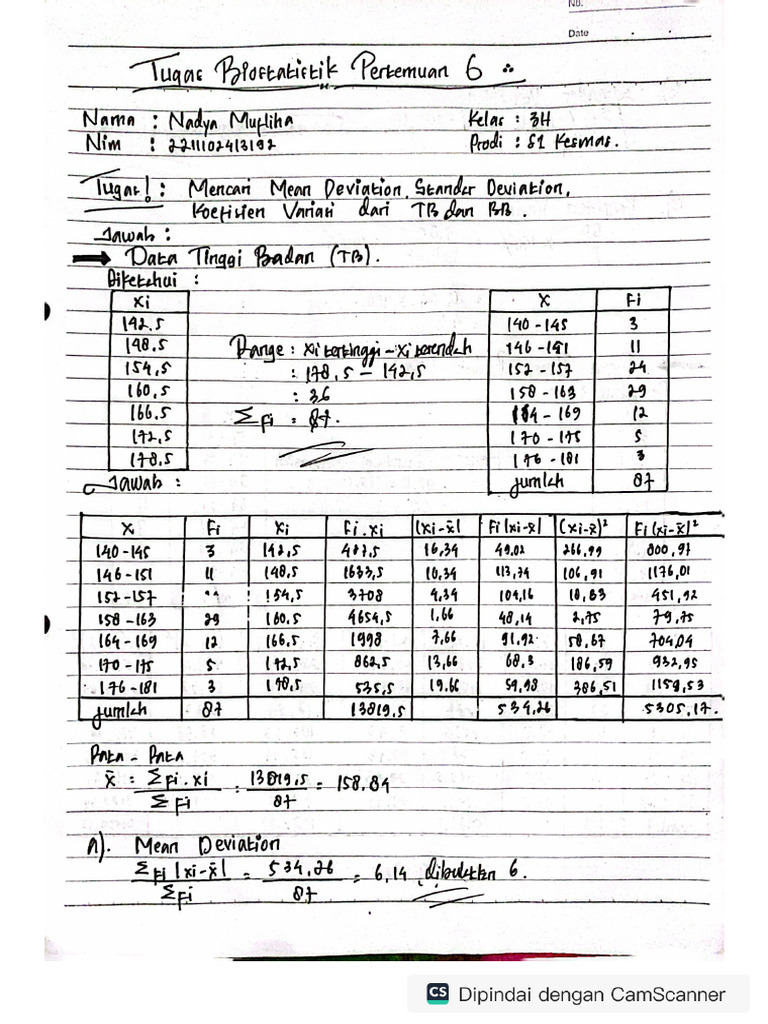 No.
Date
Tugas Biostatistik Pertemuan 6
Nama : Nadya Mufliha
Kelas : 3H
Nim : 2211102413192
Prodi : S1 Kesmas.
Tugas! : Mencari Mean Deviation, Stander Deviation,
Koefisien Variasi dari TB dan BB.
Jawab :
→ Data Tinggi Badan (TB).
Diketahui :
Xi
142.5
148.5
154,5
160,5
166.5
172,5
178.5
Range : Xi tertinggi – Xi terendah
: 178,5 – 142,5
: 36
Σfi : 87.
X Fi
140 - 145 3
146 - 151 11
152 - 157 24
158 - 163 29
164 - 169 12
170 - 175 5
176 - 181 3
jumlah 87
Jawab :
X Fi Xi Fi.Xi |Xi-x̄| Fi|xi-x̄| (Xi-x̄)² Fi(xi-x̄)²
140-145 3 142,5 427,5 16,34 49,02 266,99 800,97
146-151 11 148,5 1633,5 10,34 113,74 106,91 1176,01
152-157 154,5 3708 4,34 104,16 18,83 451,92
158-163 29 160.5 4654,5 1.66 48,14 2,75 79,75
164-169 12 166,5 1998 7,66 91,92 58,67 704,04
170-175 5 172,5 862,5 13,66 68,3 186,59 932,95
176-181 3 178,5 535,5 19.66 59,98 386,51 1159,53
jumlah 87 13819,5 534,26 5305,17.
Rata - Rata
x̄ : Σfi.xi / Σfi : 13819,5 / 87 = 158,84
A). Mean Deviation
Σfi|xi-x̄| / Σfi = 534,26 / 87 = 6,14 dibulatkan 6.
CS Dipindai dengan CamScanner